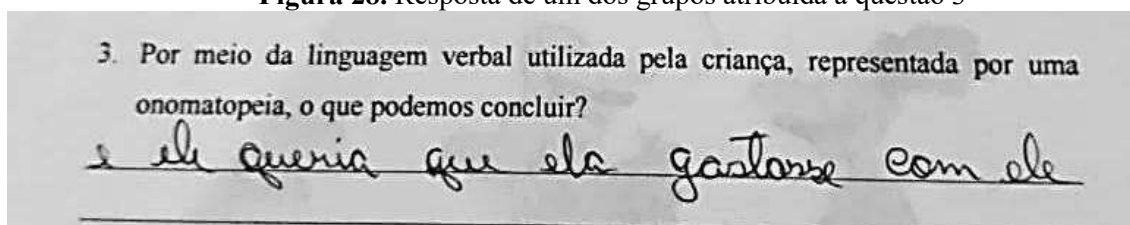 Figura 28. Resposta de um dos grupos atribuída à questão 3
3. Por meio da linguagem verbal utilizada pela criança, representada por uma
onomatopeia, o que podemos concluir?
e ele queria que ela gastasse com ele